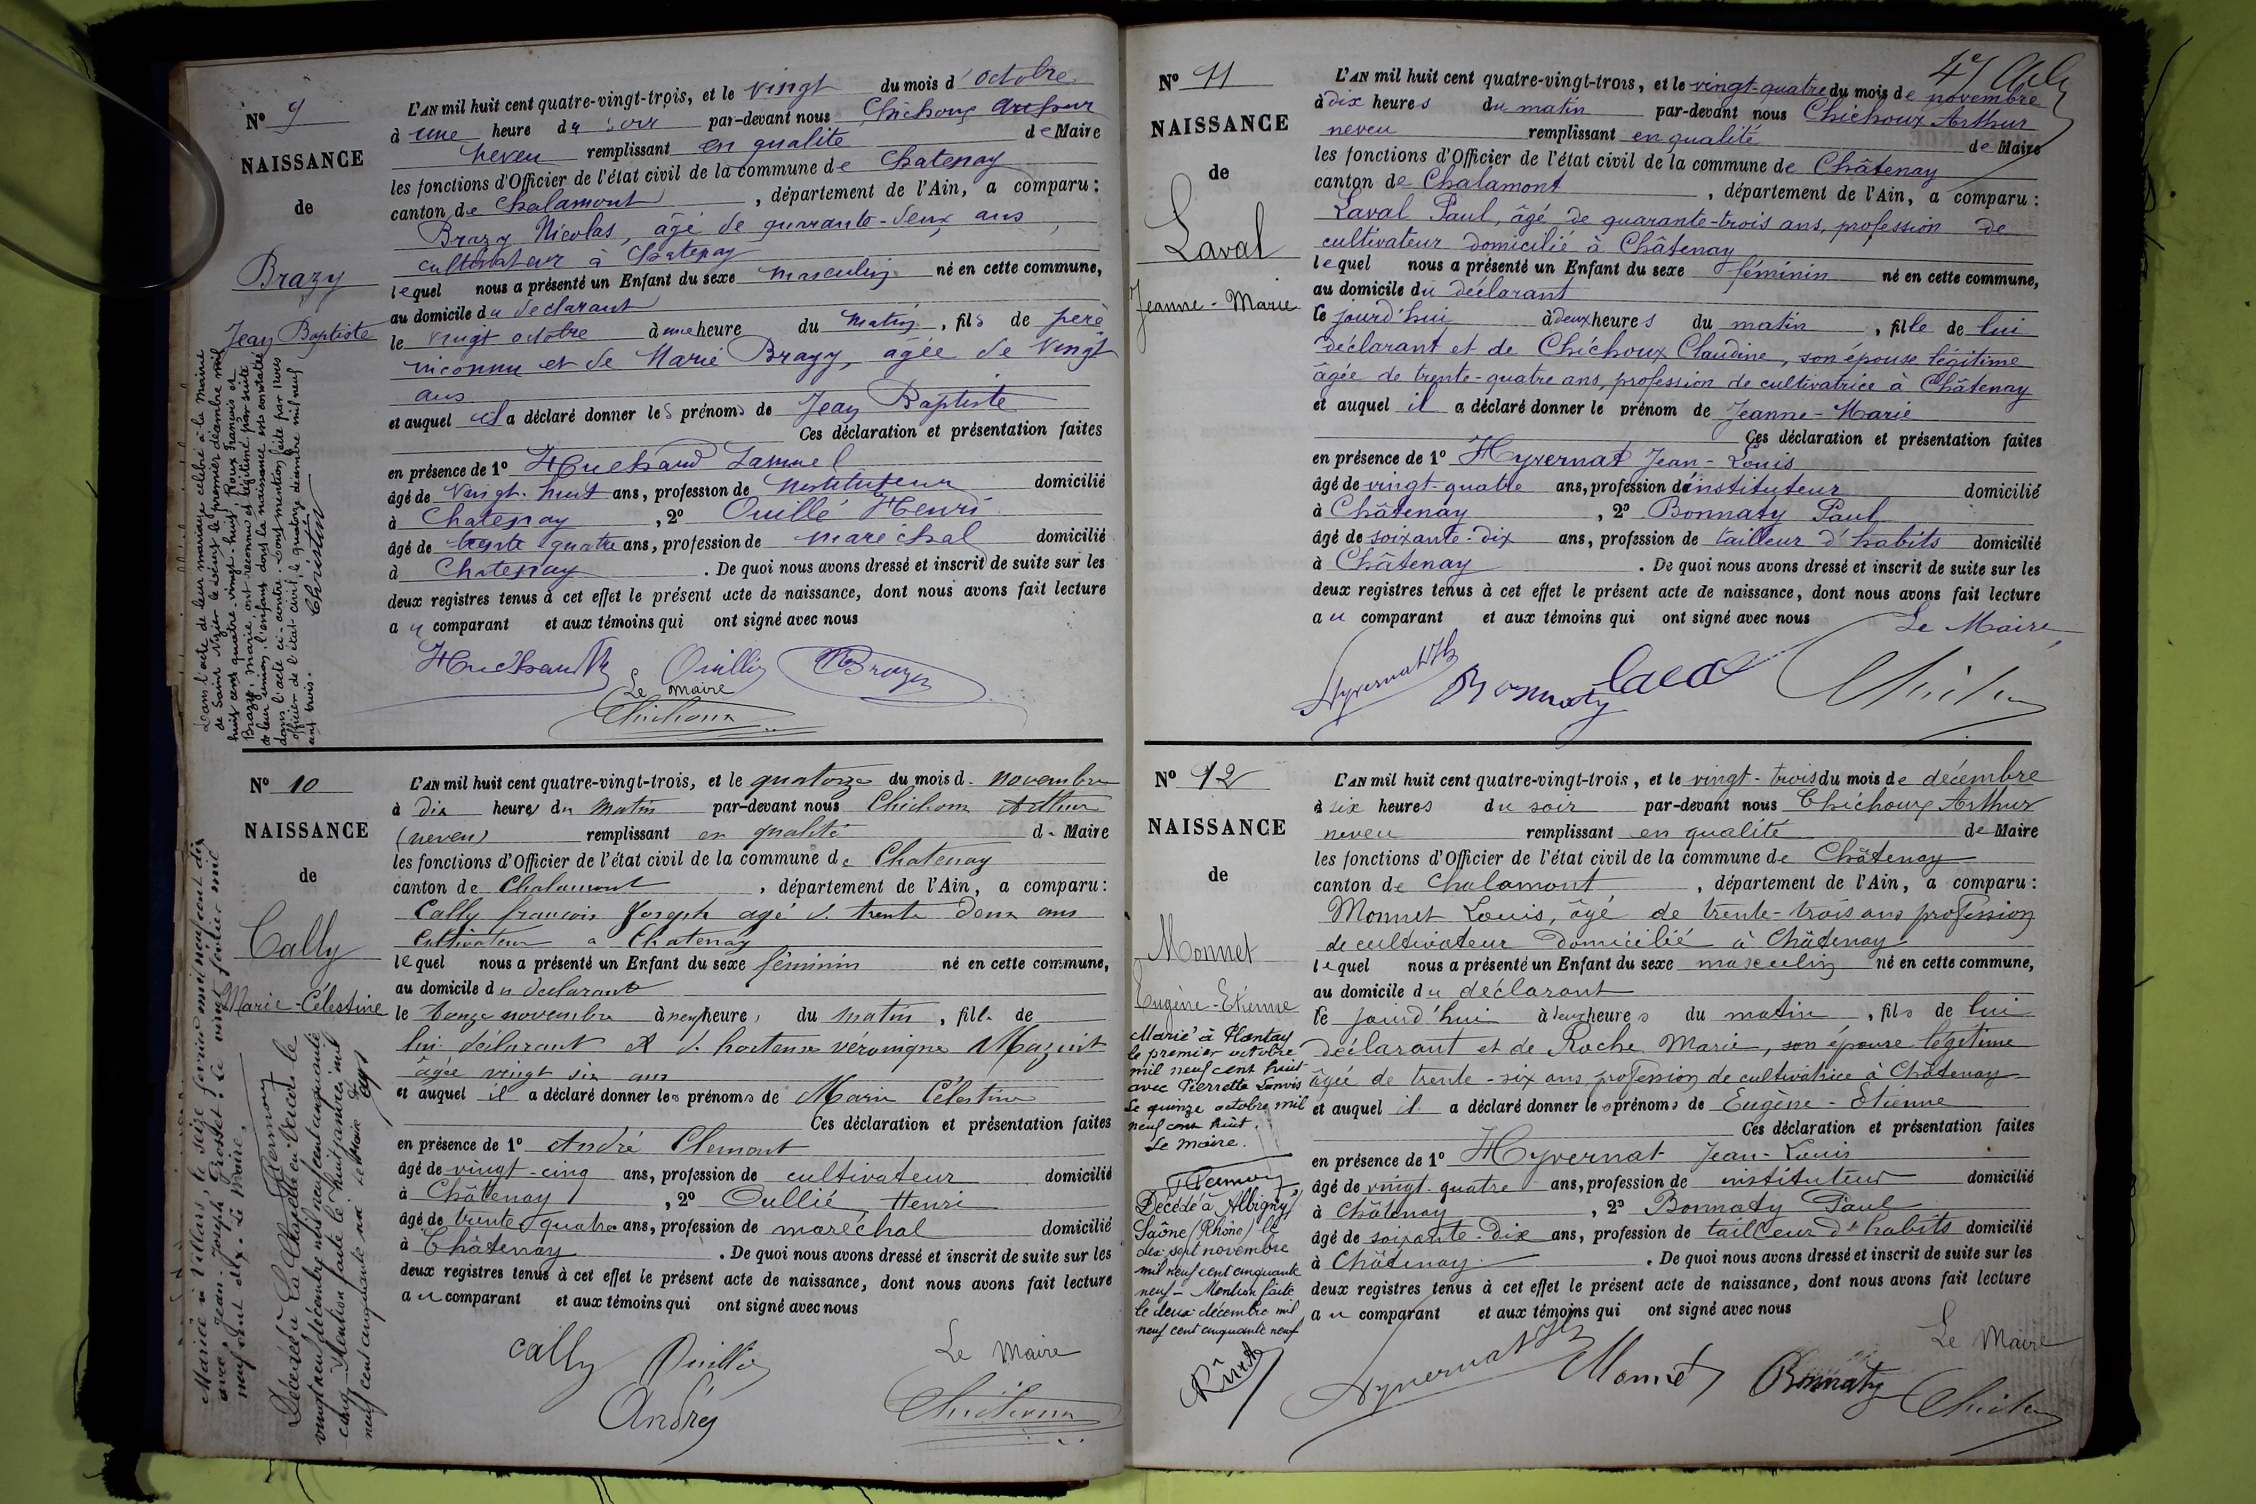 N° 9
NAISSANCE
de
Brazy
Jean Baptiste
Dans l'acte de leur mariage célébré à la mairie
de Saint Nizier le désert le premier décembre mil
huit cent quatre-vingt-huit, Roux François et
Brazy, Marie, ont reconnu et légitimé par suite
de leur union, l'enfant dont la naissance est constatée
dans l'acte ci-contre. Dont mention faite par nous
officier de l'état-civil, le quatorze décembre mil neuf
cent trois.
Christin
L'AN mil huit cent quatre-vingt-trois, et le vingt du mois d'octobre
à une heure du soir par-devant nous Chichoux Arthur
neveu remplissant en qualité de Maire
les fonctions d'Officier de l'état civil de la commune de Chatenay
canton de Chalamont, département de l'Ain, a comparu :
Brazy Nicolas, âgé de quarante-deux ans,
cultivateur à Chatenay
lequel nous a présenté un Enfant du sexe masculin né en cette commune,
au domicile du declarant
le vingt octobre à une heure du matin, fils de père
inconnu et de Marie Brazy, âgée de vingt
ans
et auquel il a déclaré donner les prénoms de Jean Baptiste
Ces déclaration et présentation faites
en présence de 1° Huchaud Samuel
âgé de vingt-huit ans, profession de instituteur domicilié
à Chatenay, 2° Ouillé Henri
âgé de trente quatre ans, profession de maréchal domicilié
à Chatenay. De quoi nous avons dressé et inscrit de suite sur les
deux registres tenus à cet effet le présent acte de naissance, dont nous avons fait lecture
au comparant et aux témoins qui ont signé avec nous
Ouillé Brazy
Le Maire
Chichoux
N° 10
NAISSANCE
de
Cally
Marie-Célestine
Mariée à Villars, le seize février mil neuf cent dix
avec Jean-Joseph Grosset. Le vingt février mil
neuf cent dix. Le Maire.
Décédée à La Chapelle en Vercors le
vingt neuf décembre mil neuf cent cinquante
cinq. Mention faite le huit janvier mil
neuf cent cinquante six Le Maire
L'AN mil huit cent quatre-vingt-trois, et le quatorze du mois de novembre
à dix heures du matin par-devant nous Chichoux Arthur
(neveu) remplissant en qualité de Maire
les fonctions d'Officier de l'état civil de la commune de Chatenay
canton de Chalamont, département de l'Ain, a comparu :
Cally françois Joseph agé de trente deux ans
cultivateur a Chatenay
lequel nous a présenté un Enfant du sexe féminin né en cette commune,
au domicile du declarant
le treize novembre à neuf heures du matin, fille de
lui déclarant et de hortense véronique Mazuit
âgée vingt six ans
et auquel il a déclaré donner les prénoms de Marie Célestine
Ces déclaration et présentation faites
en présence de 1° André Clemont
âgé de vingt-cinq ans, profession de cultivateur domicilié
à Châtenay, 2° Oullié Henri
âgé de trente quatre ans, profession de maréchal domicilié
à Châtenay. De quoi nous avons dressé et inscrit de suite sur les
deux registres tenus à cet effet le présent acte de naissance, dont nous avons fait lecture
au comparant et aux témoins qui ont signé avec nous
Cally Ouillé Le Maire
André Chichoux
N° 11
NAISSANCE
de
Laval
Jeanne-Marie
L'AN mil huit cent quatre-vingt-trois, et le vingt-quatre du mois de novembre
à dix heures du matin par-devant nous Chichoux Arthur
neveu remplissant en qualité de Maire
les fonctions d'Officier de l'état civil de la commune de Châtenay
canton de Chalamont, département de l'Ain, a comparu :
Laval Paul, âgé de quarante-trois ans, profession de
cultivateur domicilié à Châtenay
lequel nous a présenté un Enfant du sexe féminin né en cette commune,
au domicile du déclarant
le jourd'hui à deux heures du matin, fille de lui
déclarant et de Chichoux Claudine, son épouse légitime
âgée de trente-quatre ans, profession de cultivatrice à Châtenay
et auquel il a déclaré donner le prénom de Jeanne-Marie
Ces déclaration et présentation faites
en présence de 1° Hyvernat Jean-Louis
âgé de vingt-quatre ans, profession d'instituteur domicilié
à Châtenay, 2° Bonnaty Paul
âgé de soixante-dix ans, profession de tailleur d'habits domicilié
à Châtenay. De quoi nous avons dressé et inscrit de suite sur les
deux registres tenus à cet effet le présent acte de naissance, dont nous avons fait lecture
au comparant et aux témoins qui ont signé avec nous
Le Maire
Hyvernat Bonnaty Laval
N° 12
NAISSANCE
de
Monnet
Eugène-Etienne
Marié à Plantay
le premier octobre
mil neuf cent huit
avec Pierrette
Le quinze octobre mil
neuf cent huit.
Le maire.
Décédé à Albigny s/
Saône (Rhône) le
dix-sept novembre
mil neuf cent cinquante
neuf - Mention faite
le deux décembre mil
neuf cent cinquante neuf
L'AN mil huit cent quatre-vingt-trois, et le vingt-trois du mois de décembre
à six heures du soir par-devant nous Chichoux Arthur
neveu remplissant en qualité de Maire
les fonctions d'Officier de l'état civil de la commune de Châtenay
canton de Chalamont, département de l'Ain, a comparu :
Monnet Louis, âgé de trente-trois ans profession
de cultivateur domicilié à Châtenay
lequel nous a présenté un Enfant du sexe masculin né en cette commune,
au domicile du déclarant
le jourd'hui à heures du matin, fils de lui
déclarant et de Roche Marie, son épouse légitime
âgée de trente-six ans profession de cultivatrice à Châtenay
et auquel il a déclaré donner les prénoms de Eugène-Etienne
Ces déclaration et présentation faites
en présence de 1° Hyvernat Jean-Louis
âgé de vingt-quatre ans, profession de instituteur domicilié
à Châtenay, 2° Bonnaty Paul
âgé de soixante-dix ans, profession de tailleur d'habits domicilié
à Châtenay. De quoi nous avons dressé et inscrit de suite sur les
deux registres tenus à cet effet le présent acte de naissance, dont nous avons fait lecture
au comparant et aux témoins qui ont signé avec nous
Le Maire
Hyvernat Monnet Bonnaty